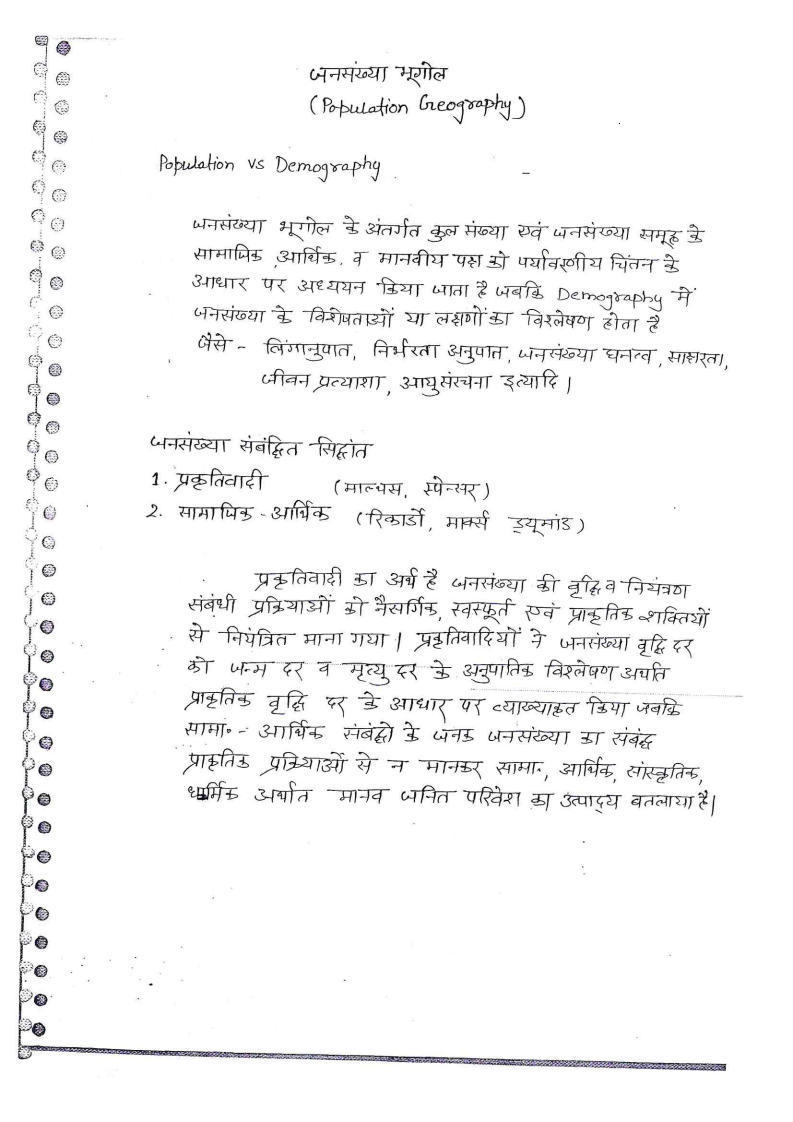 जनसंख्या भूगोल
(Population Geography)
Population vs Demography
जनसंख्या भूगोल के अंतर्गत कुल संख्या एवं जनसंख्या समूह के
सामाजिक, आर्थिक, व मानवीय पक्ष को पर्यावरणीय चिंतन के
आधार पर अध्ययन किया जाता है जबकि Demography में
जनसंख्या के विशेषताओं या लक्षणों का विश्लेषण होता है
जैसे - लिंगानुपात, निर्भरता अनुपात, जनसंख्या घनत्व, साक्षरता,
जीवन प्रत्याशा, आयुसंरचना इत्यादि।
जनसंख्या संबंद्धित सिद्धांत
1. प्रकृतिवादी (माल्थस, स्पेन्सर)
2. सामाजिक - आर्थिक (रिकार्डो, मार्क्स ड्यूमांड)
प्रकृतिवादी का अर्थ है जनसंख्या की वृद्धि व नियंत्रण
संबंधी प्रक्रियाओं को नैसर्गिक, स्वस्फूर्त एवं प्राकृतिक शक्तियों
से नियंत्रित माना गया। प्रकृतिवादियों ने जनसंख्या वृद्धि दर
को जन्म दर व मृत्यु दर के अनुपातिक विश्लेषण अर्थात
प्राकृतिक वृद्धि दर के आधार पर व्याख्याकृत किया जबकि
सामा॰ - आर्थिक संबंद्धो के जनक जनसंख्या का संबंद्ध
प्राकृतिक प्रक्रियाओं से न मानकर सामा॰, आर्थिक, सांस्कृतिक,
धार्मिक अर्थात मानव जनित परिवेश का उत्पाद्य बतलाया है।